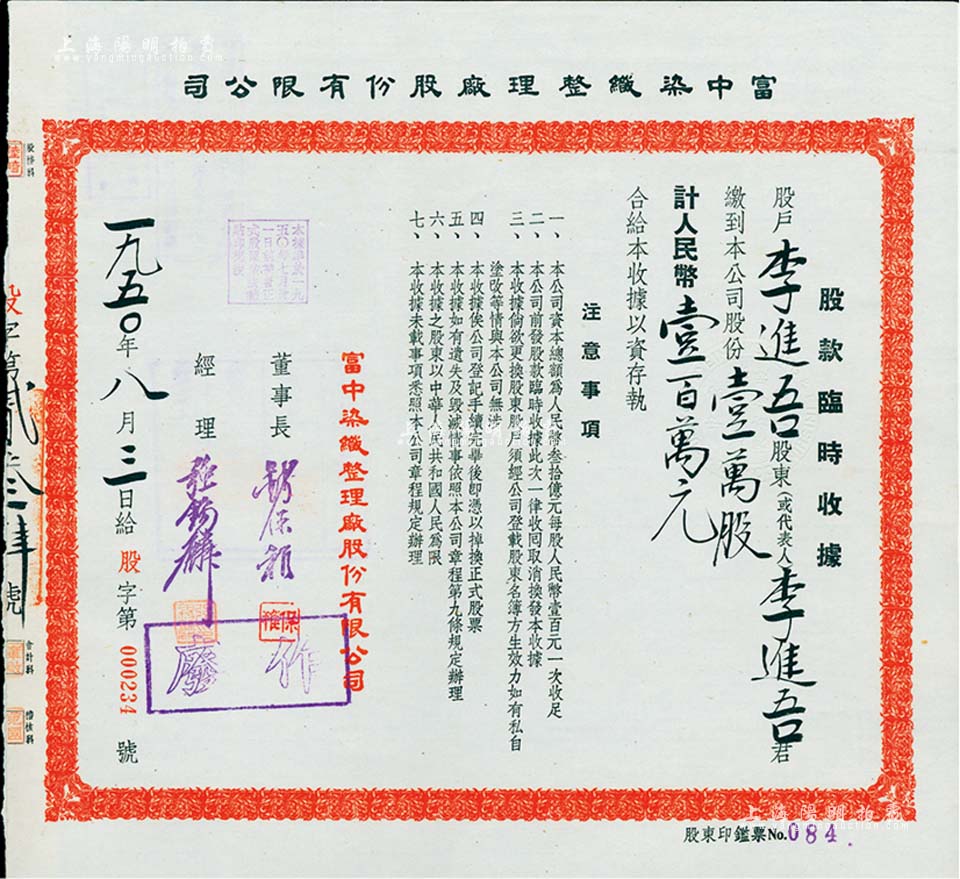 上海陽明拍賣
www.yangmingauction.com
富中染織整理廠股份有限公司
股款臨時收據
股戶李進吾股東（或代表人李進吾君
繳到本公司股份壹萬股
計人民幣壹百萬元
合給本收據以資存執
注意事項
一、本公司資本總額為人民幣叁拾億元每股人民幣壹百元一次收足
二、本公司前發股款臨時收據此次一律收回取消換發本收據
三、本收據倘欲更換股東股戶須經公司登載股東名簿方生效力如有私自
塗改等情與本公司無涉
四、本收據俟公司登記手續完畢後即憑以掉換正式股票
五、本收據如有遺失及毀滅情事依照本公司章程第九條規定辦理
六、本收據之股東以中華人民共和國人民為限
七、本收據未載事項悉照本公司章程規定辦理
富中染織整理廠股份有限公司
董事長
經理
作廢
一九五〇年八月三日給 股字第000234號
股字第貳叁肆號
會計科
稽核科
股東印鑑票No.084.
上海陽明拍賣